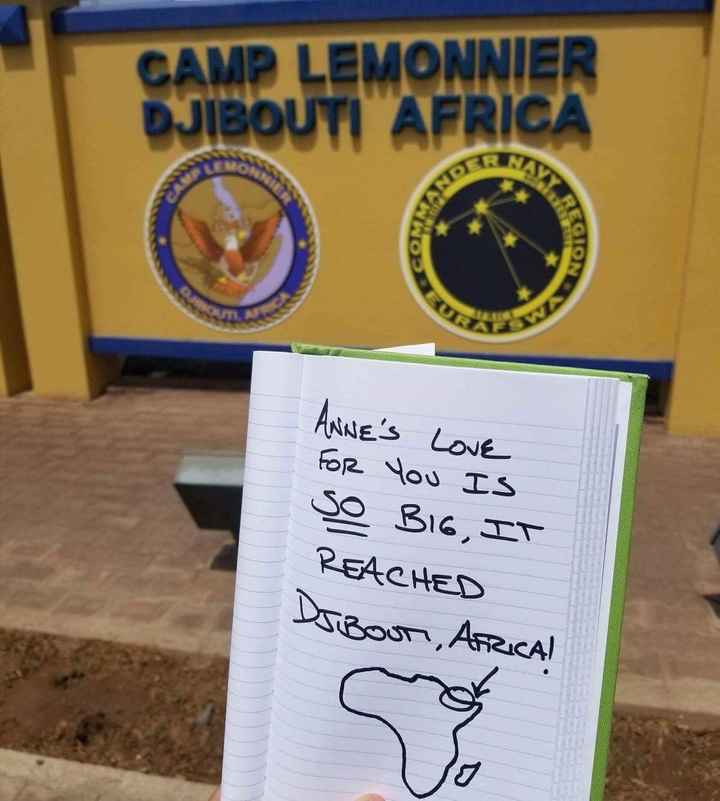 CAMP LEMONNIER
DJIBOUTI AFRICA
CAMP LEMONNIER
DJIBOUTI, AFRICA
COMMANDER NAVY REGION
EURAFSWA
ANNE'S LOVE
FOR YOU IS
SO BIG, IT
REACHED
DJIBOUTI, AFRICA!